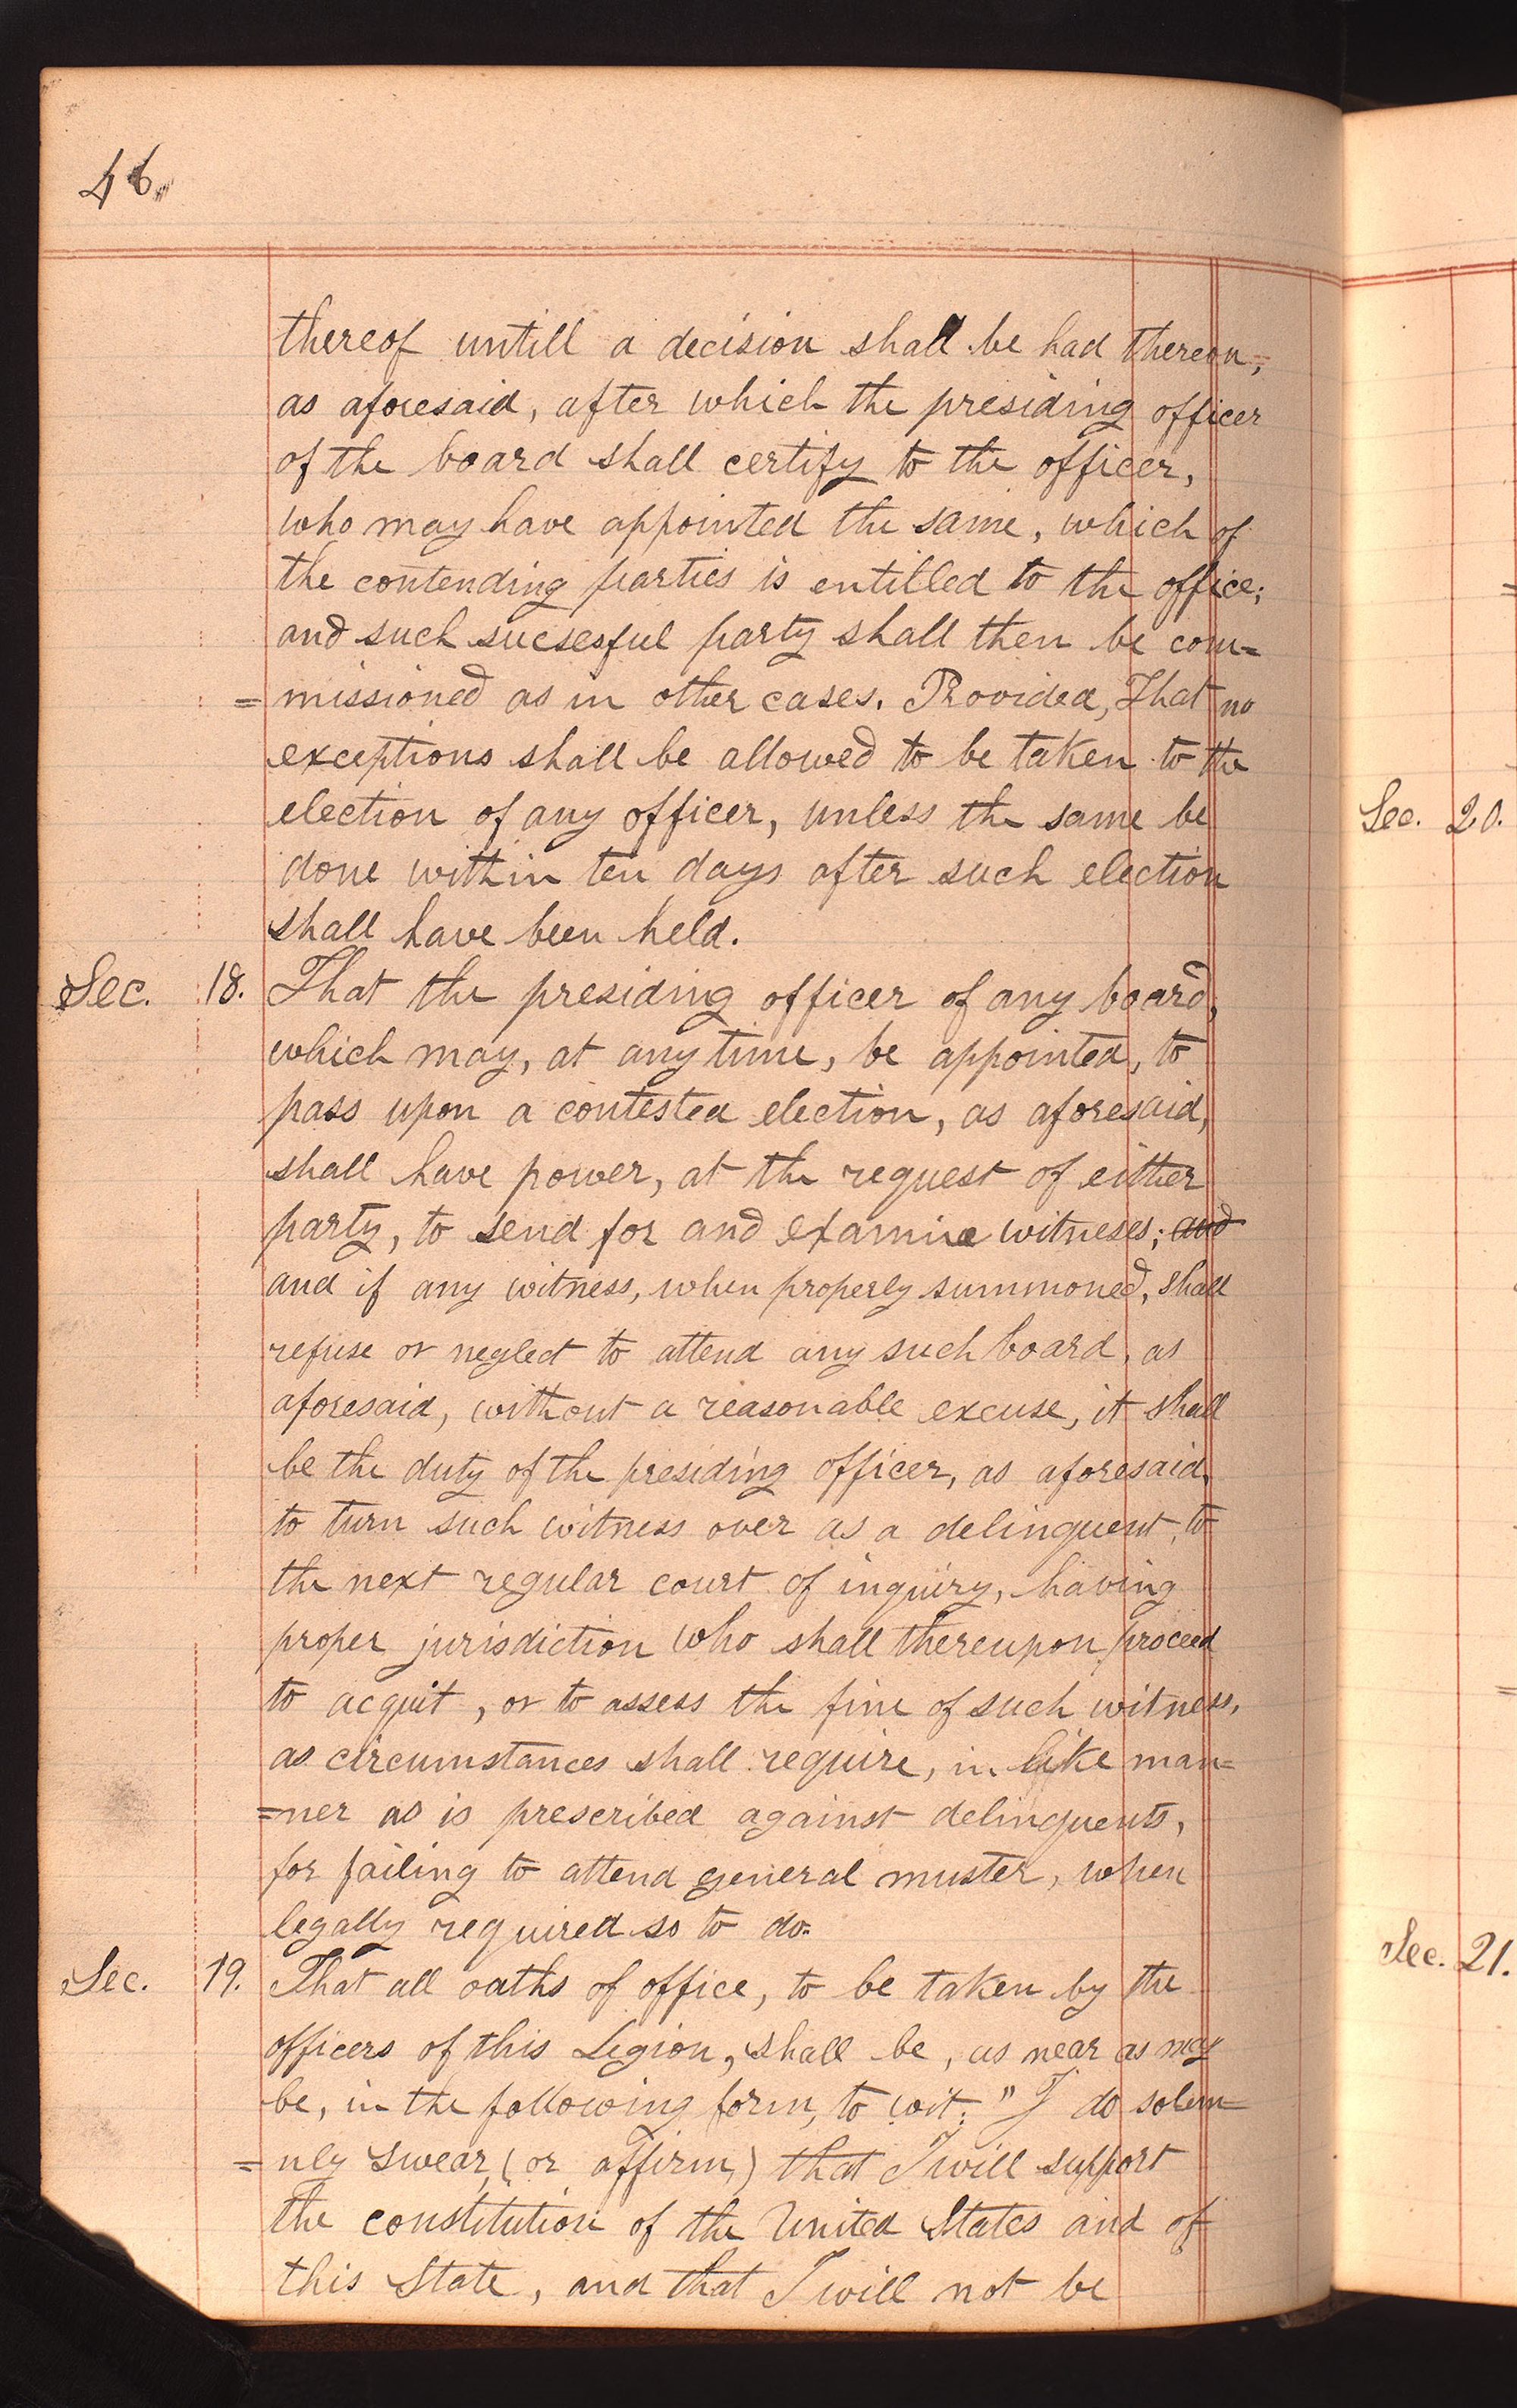 46.
thereof untill a decision shall be had thereon,
as aforesaid, after which the presiding officer
of the board shall certify to the officer,
who may have appointed the same, which of
the contending parties is entitled to the office;
and such sucsesful party shall then be com=
=missioned as in other cases. Provided, That no
exceptions shall be allowed to be taken to the
election of any officer, unless the same be
done within ten days after such election
shall have been held.
Sec. 18. That the presiding officer of any board,
which may, at any time, be appointed, to
pass upon a contested election, as aforesaid,
shall have power, at the request of either
party, to send for and examine witneses; and
and if any witness, when properly summoned, shall
refuse or neglect to attend any such board, as
aforesaid, without a reasonable excuse, it shall
be the duty of the presiding officer, as aforesaid,
to turn such witness over as a delinquent, to
the next regular court of inquiry, having
proper jurisdiction who shall thereupon proceed
to acquit, or to assess the fine of such witness,
as circumstances shall require, in like man=
=ner as is prescribed against delinquents,
for failing to attend general muster, when
legally required so to do.
Sec. 19. That all oaths of office, to be taken by the
officers of this Legion, shall be, as near as may
be, in the following form, to wit: "I do solem=
=nly swear, (or affirm,) that I will support
the constitution of the United States and of
this State, and that I will not be
Sec. 20.
Sec. 21.